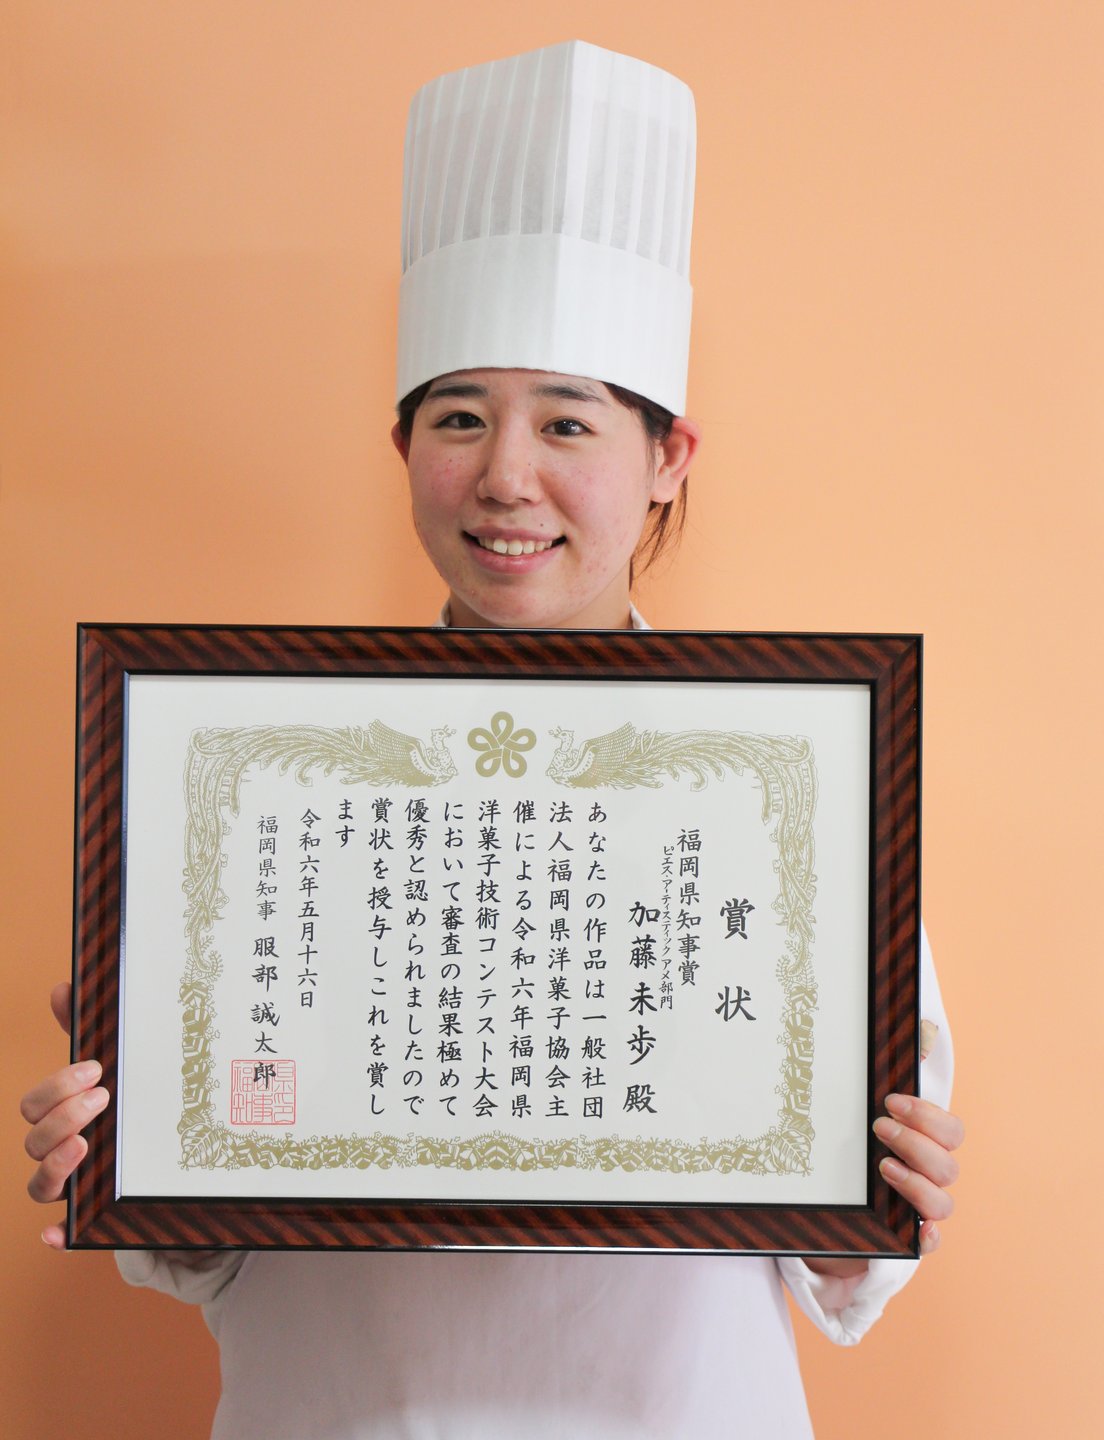 賞状
福岡県知事賞
ピエス・アーティスティックアメ部門
加藤未歩殿
あなたの作品は一般社団
法人福岡県洋菓子協会主
催による令和六年福岡県
洋菓子技術コンテスト大会
において審査の結果極めて
優秀と認められましたので
賞状を授与しこれを賞し
ます
令和六年五月十六日
福岡県知事 服部誠太郎